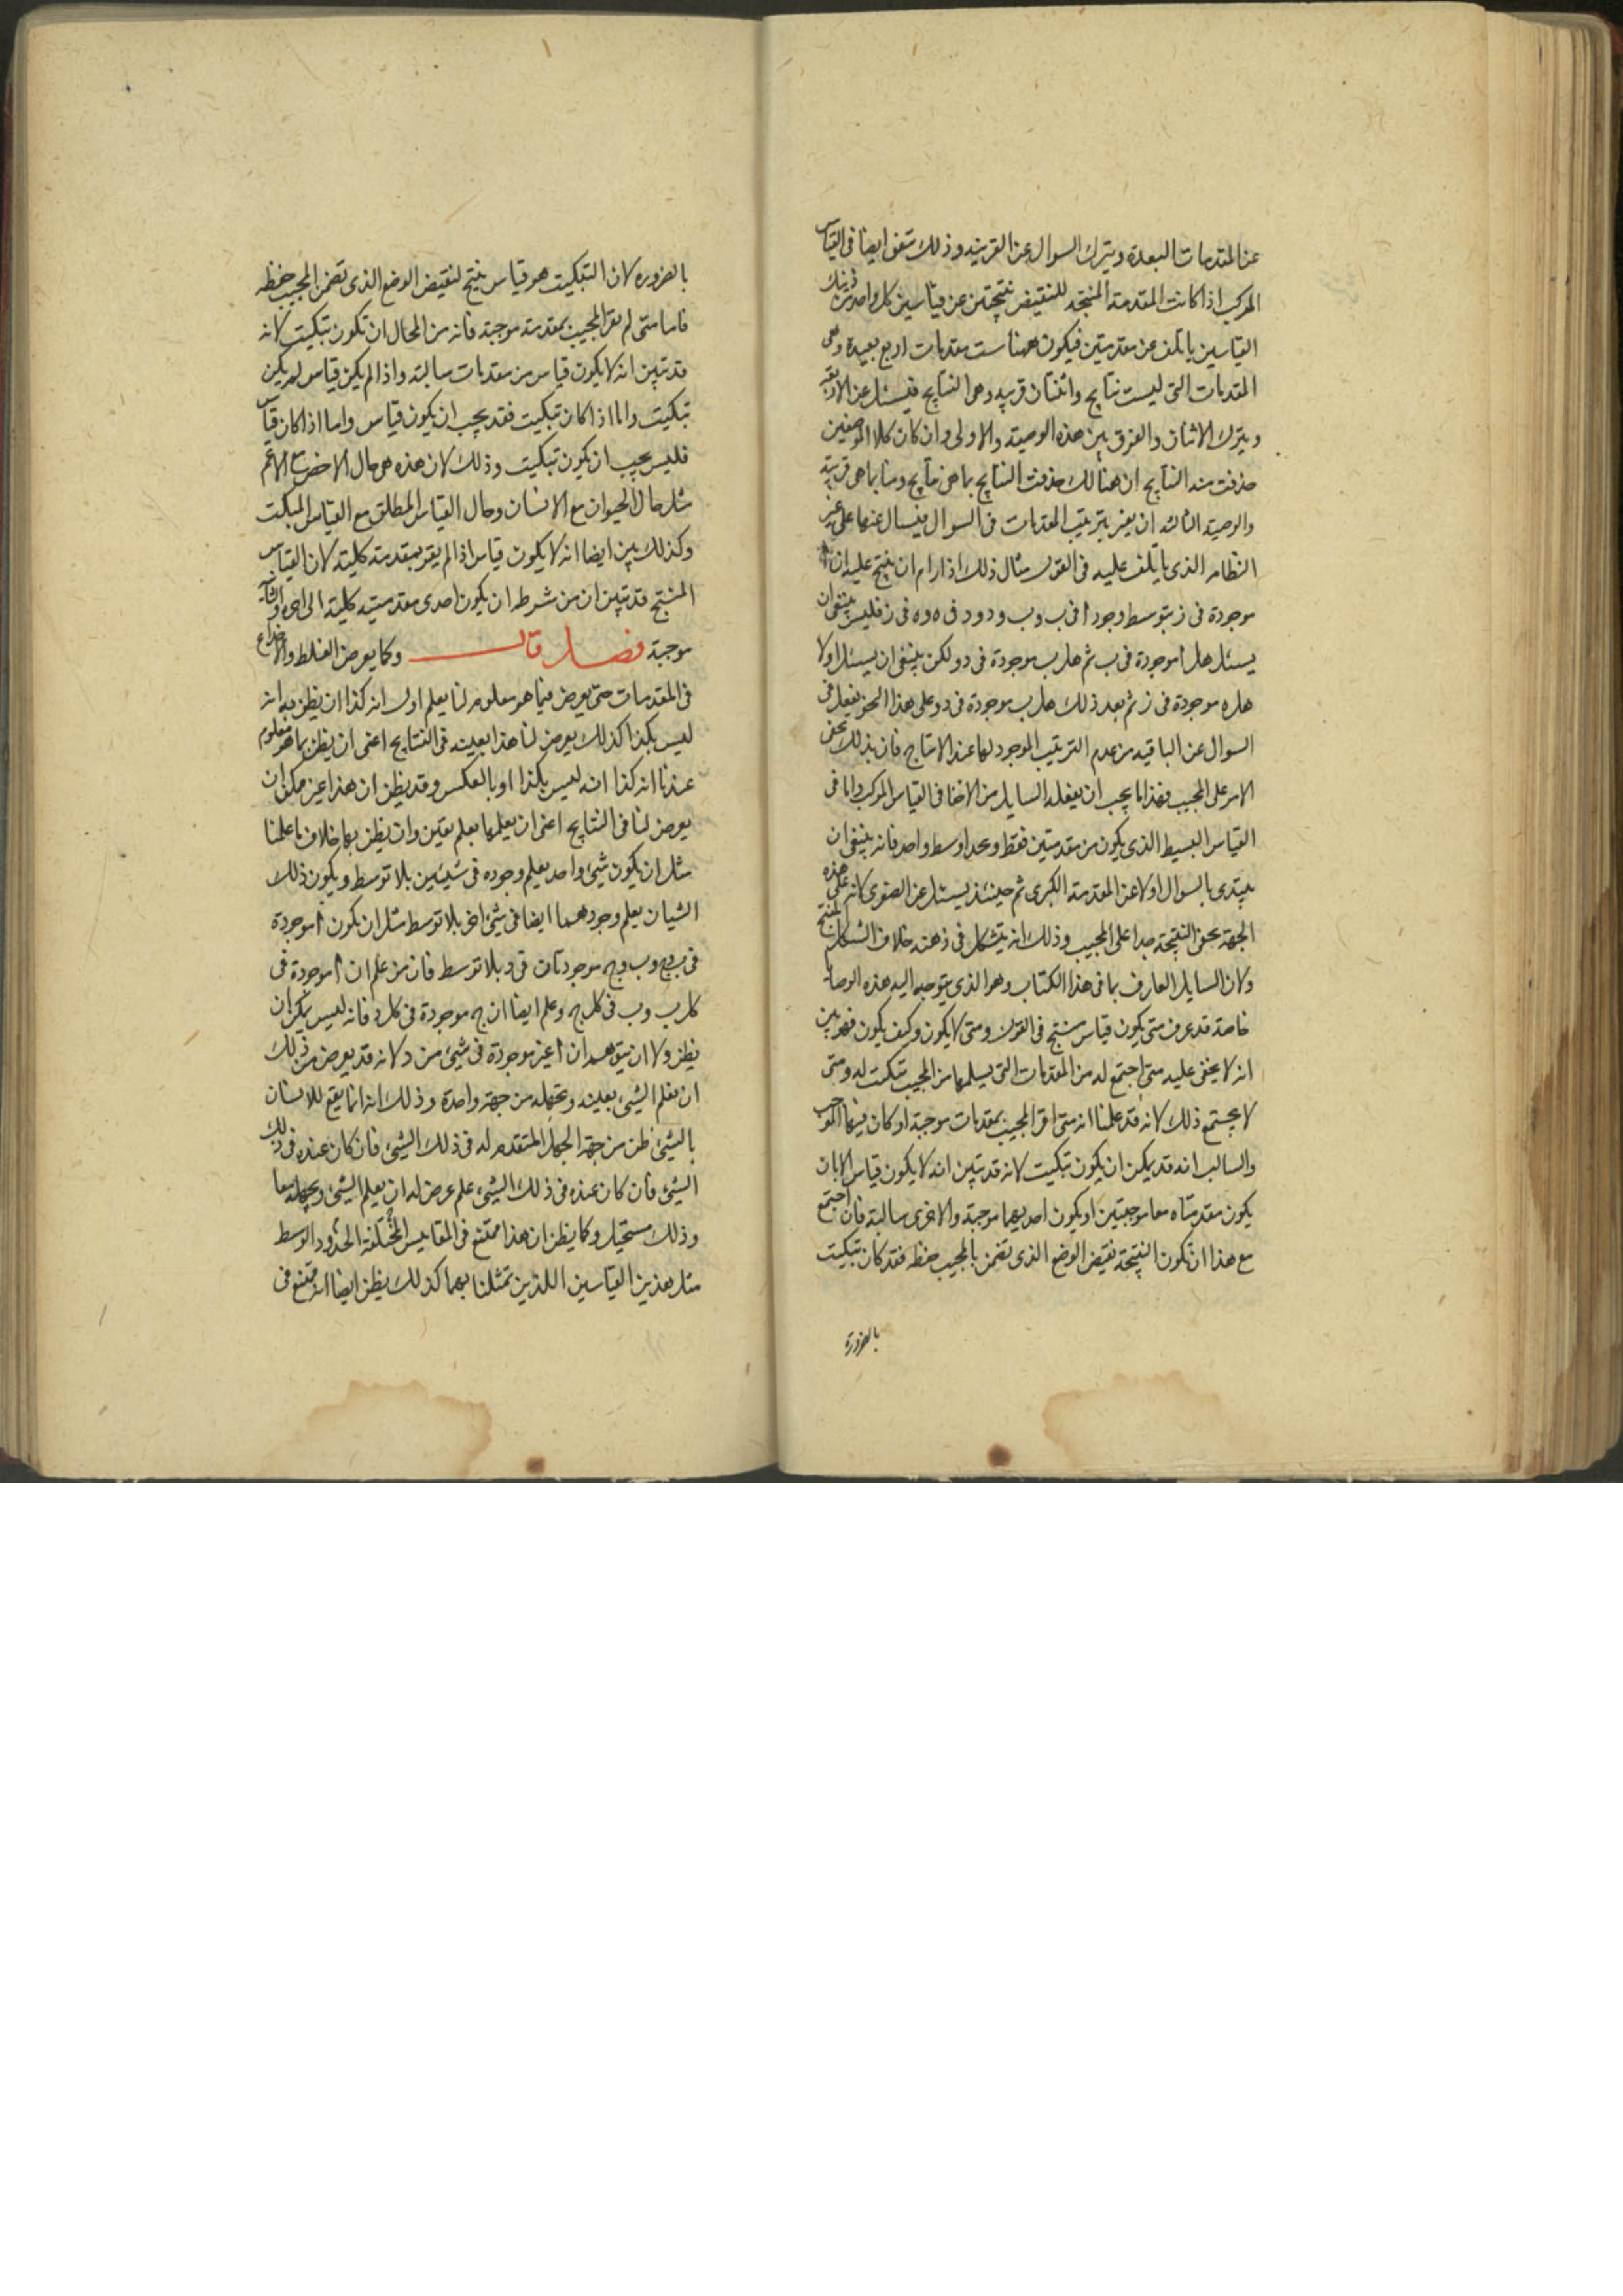 عن المقدمات البعيدة ويترك السوال عن القريبه وذلك يتفق ايضا فى القياس
المركب اذا كانت المقدمة المنتجة للنقيض نتيجتين عن قياسين كل واحد من ذينك
القياسين ياتلف عن مقدمتين فيكون ههنا ست مقدمات اربع بعيدة وهى
المقدمات التى ليست نتايج واثنتان قريبه وهى النتايج فيسئل عن الاربعه
ويترك الاثنان والفرق بين هذه الوصية والاولى وان كان كلا الموضعين
حذفت منه النتايج ان هنالك حذفت النتايج بما هى نتايج وهنا بما هى قريبة
والوصية الثالثه ان يغير بترتيب المقدمات فى السوال فيسال عنها على غير
النظام الذى ياتلف عليه فى القول مثال ذلك اذا رام ان ينتج عليه ان ا
موجودة فى ز بتوسط وجود ا فى ب وب و د و د فى ه و ه فى ز فليس ينبغى ان
يسئل هل ا موجودة فى ب ثم هل ب موجودة فى د ولكن ينبغى ان يسئل اولا
هل ه موجودة فى ز ثم بعد ذلك هل ب موجودة فى د وعلى هذا النحو يفعل فى
السوال عن الباقيه من عدم الترتيب الموجود لها عند الانتاج فان بذلك يخفى
الامر على المجيب فهذا ما يجب ان يفعله السايل من الاخفا فى القياس المركب واما فى
القياس البسيط الذى يكون من مقدمتين فقط وبحد اوسط واحد فانه ينبغى ان
يبتدى بالسوال اولا عن المقدمة الكبرى ثم حينئذ يسئل عن الصغرى لانه على هذه
الجهة يخفى النتيجة جدا على المجيب وذلك انه يتشكل فى ذهنه خلاف الشكل المنتج
ولان السايل العارف بما فى هذا الكتاب وهو الذى يتوجه اليه هذه الوصايا
خاصة قد عرف متى يكون قياس منتج فى القول ومتى لا يكون وكيف يكون فهو بين
انه لا يخفى عليه متى اجتمع له من المقدمات التى يسلمها من المجيب تبكيت له ومتى
لا يجتمع ذلك لانه قد علمنا انه متى اقر المجيب بمقدمات موجبة او كان فيها الموجب
والسالب انه قد يمكن ان يكون تبكيت لانه قد تبين انه لا يكون قياس الا بان
يكون مقدمتاه معا موجبتين او يكون احديهما موجبة والاخرى سالبة فان اجتمع
مع هذا ان تكون النتيجة نقيض الوضع الذى تضمن بالمجيب حفظه فقد كان تبكيت
بالضرورة
بالضروره لان التبكيت هو قياس ينتج لنقيض الوضع الذى تضمن المجيب حفظه
فاما متى لم يقر المجيب بمقدمة موجبة فانه من المحال ان تكون تبكيت لانه
قد تبين انه لا يكون قياس من مقدمات سالبة واذا لم يكن قياس لم يكن
تبكيت واما اذا كان تبكيت فقد يجب ان يكون قياس واما اذا كان قياس
فليس يجب ان يكون تبكيت وذلك لان هذه هى حال الاخص مع الاعم
مثل حال الحيوان مع الانسان وحال القياس المطلق مع القياس المبكت
وكذلك بين ايضا انه لا يكون قياس اذا لم يقر بمقدمة كلية لان القياس
المنتج قد تبين ان من شرطه ان يكون احدى مقدمتيه كلية
موجبة فصل قال وكما يعرض الغلط والانخداع
فى المقدمات حتى يعرض فيما هو معلوم لنا بعلم اول انه كذا ان يظن به انه
ليس بكذا كذلك يعرض لنا هذا بعينه فى النتايج اعنى ان يظن بما هو معلوم
عندنا انه كذا انه ليس بكذا او بالعكس وقد يظن ان هذا غير ممكن ان
يعرض لنا فى النتايج اعنى ان يعلمها بعلم يقين وان يظن بها خلاف ما علمنا
مثل ان يكون شيئ واحد يعلم وجوده فى شيئين بلا توسط ويكون ذلك
الشيان يعلم وجودهما ايضا فى شيئ اخر بلا توسط مثل ان تكون ا موجودة
فى ب وج وب وج موجودتان فى د بلا توسط فان من علم ان ا موجودة فى
كل ب وب فى كل ج وعلم ايضا ان ج موجودة فى كل د فانه ليس يمكن ان
يظن ولا ان يتوهم ان ا غير موجودة فى شيئ من د لانه قد يعرض من ذلك
ان يعلم الشيئ بعينه ويجهله من جهة واحدة وذلك انه انما يقع للانسان
بالشيئ ظن من جهة الجهل المتقدم له فى ذلك الشيئ فان كان عنده فى ذلك
الشيئ فان كان عنده فى ذلك الشيئ علم عرض له ان يعلم الشيئ ويجهله معا
وذلك مستحيل وكما يظن ان هذا ممتنع فى المقاييس المختلفة الحدود الوسط
مثل هذين القياسين اللذين تمثلنا بهما كذلك يظن ايضا انه ممتنع فى